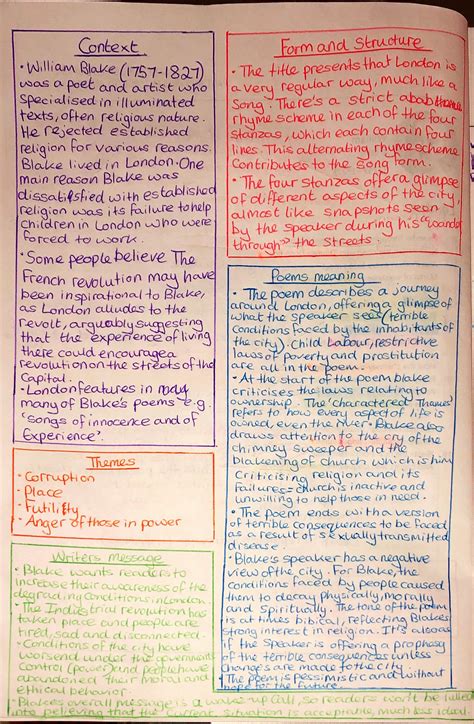 Context
• William Blake (1757-1827)
was a poet and artist who
specialised in illuminated
texts, often religious nature.
He rejected established
religion for various reasons.
Blake lived in London. One
main reason Blake was
dissatisfied with established
religion was its failure to help
children in London who were
forced to work.
• Some people believe The
French revolution may have
been inspirational to Blake,
as London alludes to the
revolt, arguably suggesting
that the experience of living
there could encourage a
revolution on the streets of the
Capital.
• London features in
many of Blake's poems e.g
'songs of innocence and of
Experience'.
Themes
- Corruption
- Place
- Futility
- Anger of those in power
Writers message
• Blake wants readers to
increase their awareness of the
degrading conditions in London.
• The Industrial revolution has
taken place and people are
tired, sad and disconnected.
• Conditions of the city have
worsened under the government's
control (power) and people have
abandoned their moral and
ethical behavior.
• Blakes overall message is a wake up call, so readers won't be lulled
into believing that the current situation is acceptable, much less ideal
Form and Structure
• The title presents that London is
a very regular way, much like a
Song. There's a strict abab
rhyme scheme in each of the four
stanzas, which each contain four
lines. This alternating rhyme scheme
Contributes to the song form.
• The four stanzas offer a glimpse
of different aspects of the city,
almost like snapshots seen
by the speaker during his "wander
through" the streets.
Poems meaning
• The poem describes a journey
around London, offering a glimpse of
what the speaker sees (terrible
Conditions faced by the inhabitants of
the city). Child Labour, restrictive
laws of poverty and prostitution
are all in the poem.
• At the start of the poem blake
criticises the laws relating to
ownership. The 'charactered Thames'
refers to how every aspect of life is
owned, even the river. Blake also
draws attention to the cry of the
chimney sweeper and the
blakening of church which is him
Criticising religion and its
failures = church is inactive and
unwilling to help those in need.
• The poem ends with a version
of terrible consequences to be faced
as a result of sexually transmitted
disease.
• Blake's speaker has a negative
view of the city. For Blake, the
conditions faced by people caused
them to decay physically, morally
and spiritually. The tone of the poem
is at times biblical, reflecting Blakes
strong interest in religion. It's also as
if the speaker is offering a prophesy
of the terrible consequences unless
changes are made to the city.
• The poem is pessimistic and without
hope for the future.